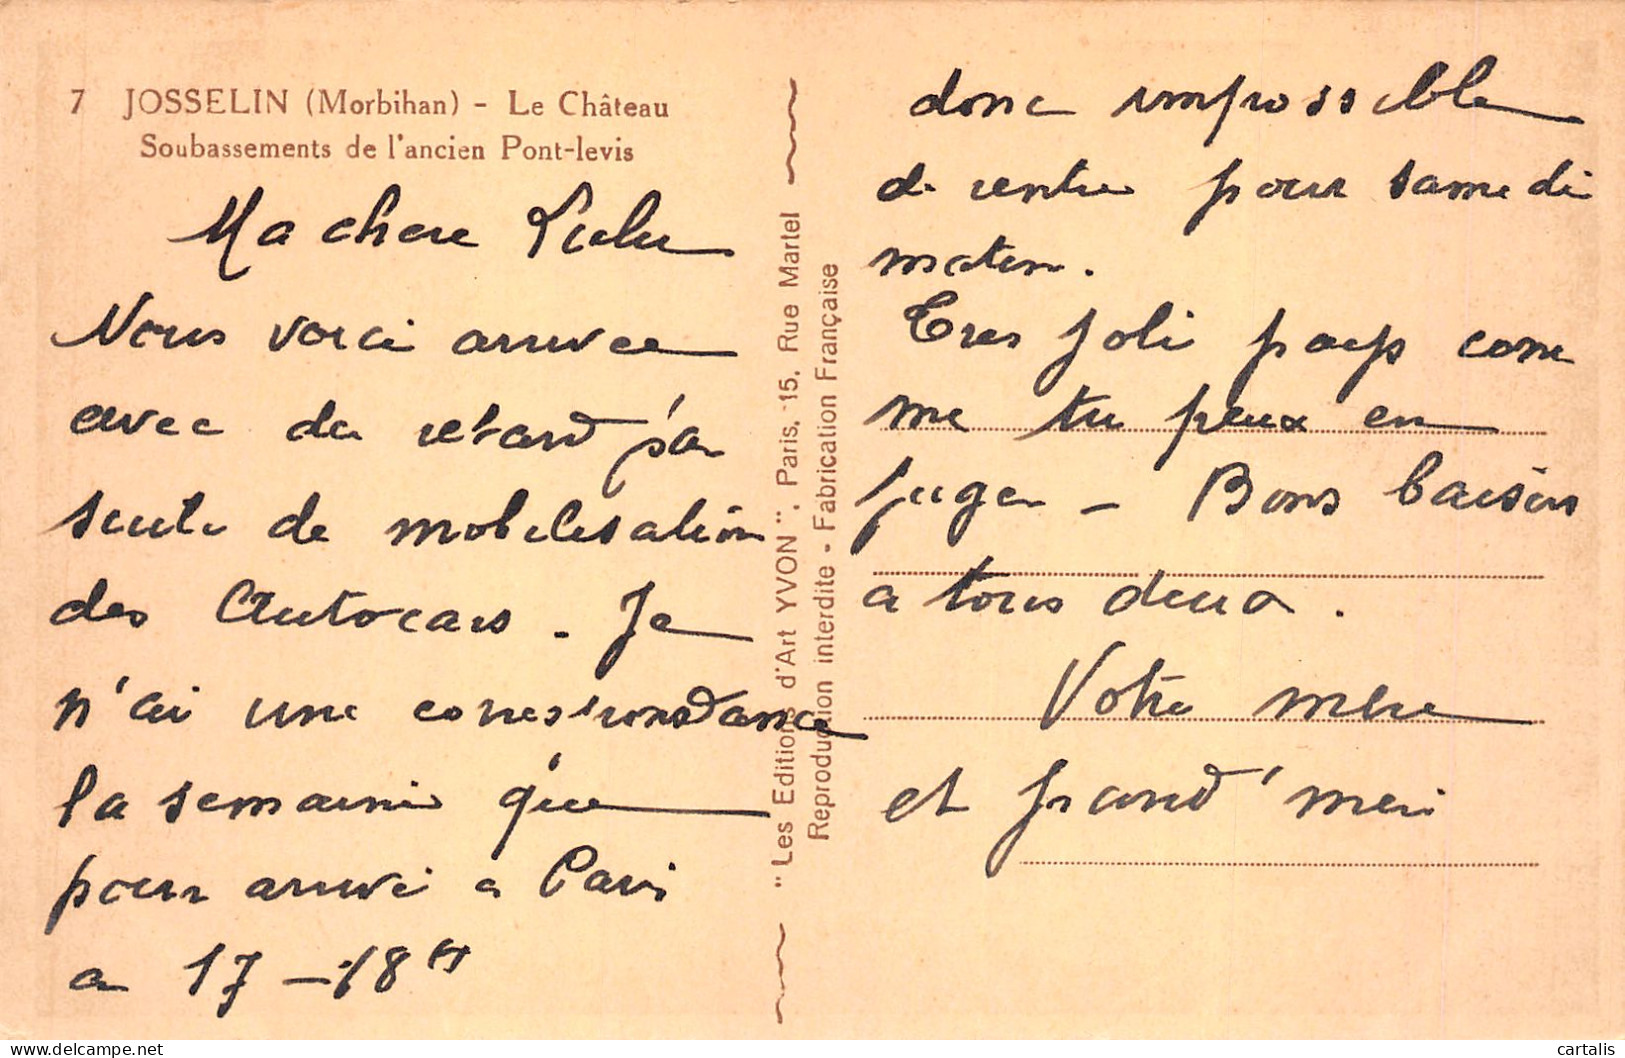 7 JOSSELIN (Morbihan) - Le Château
Soubassements de l'ancien Pont-levis
Ma chere Lulu
Nous voici arrivee
avec du retard par
suite de mobilisation
des Autocars. Je
n'ai une correspondance
la semaine que
pour arrivé a Paris
a 17-18 H
donc impossible
de rentre pour samedi
matin.
Tres joli pays com
me tu peux en
juger - Bons baisers
a tous deux.
Votre mère
et grand'mere
"Les Editions d'Art YVON", Paris, 15, Rue Martel
Reproduction interdite - Fabrication Française
cartalis